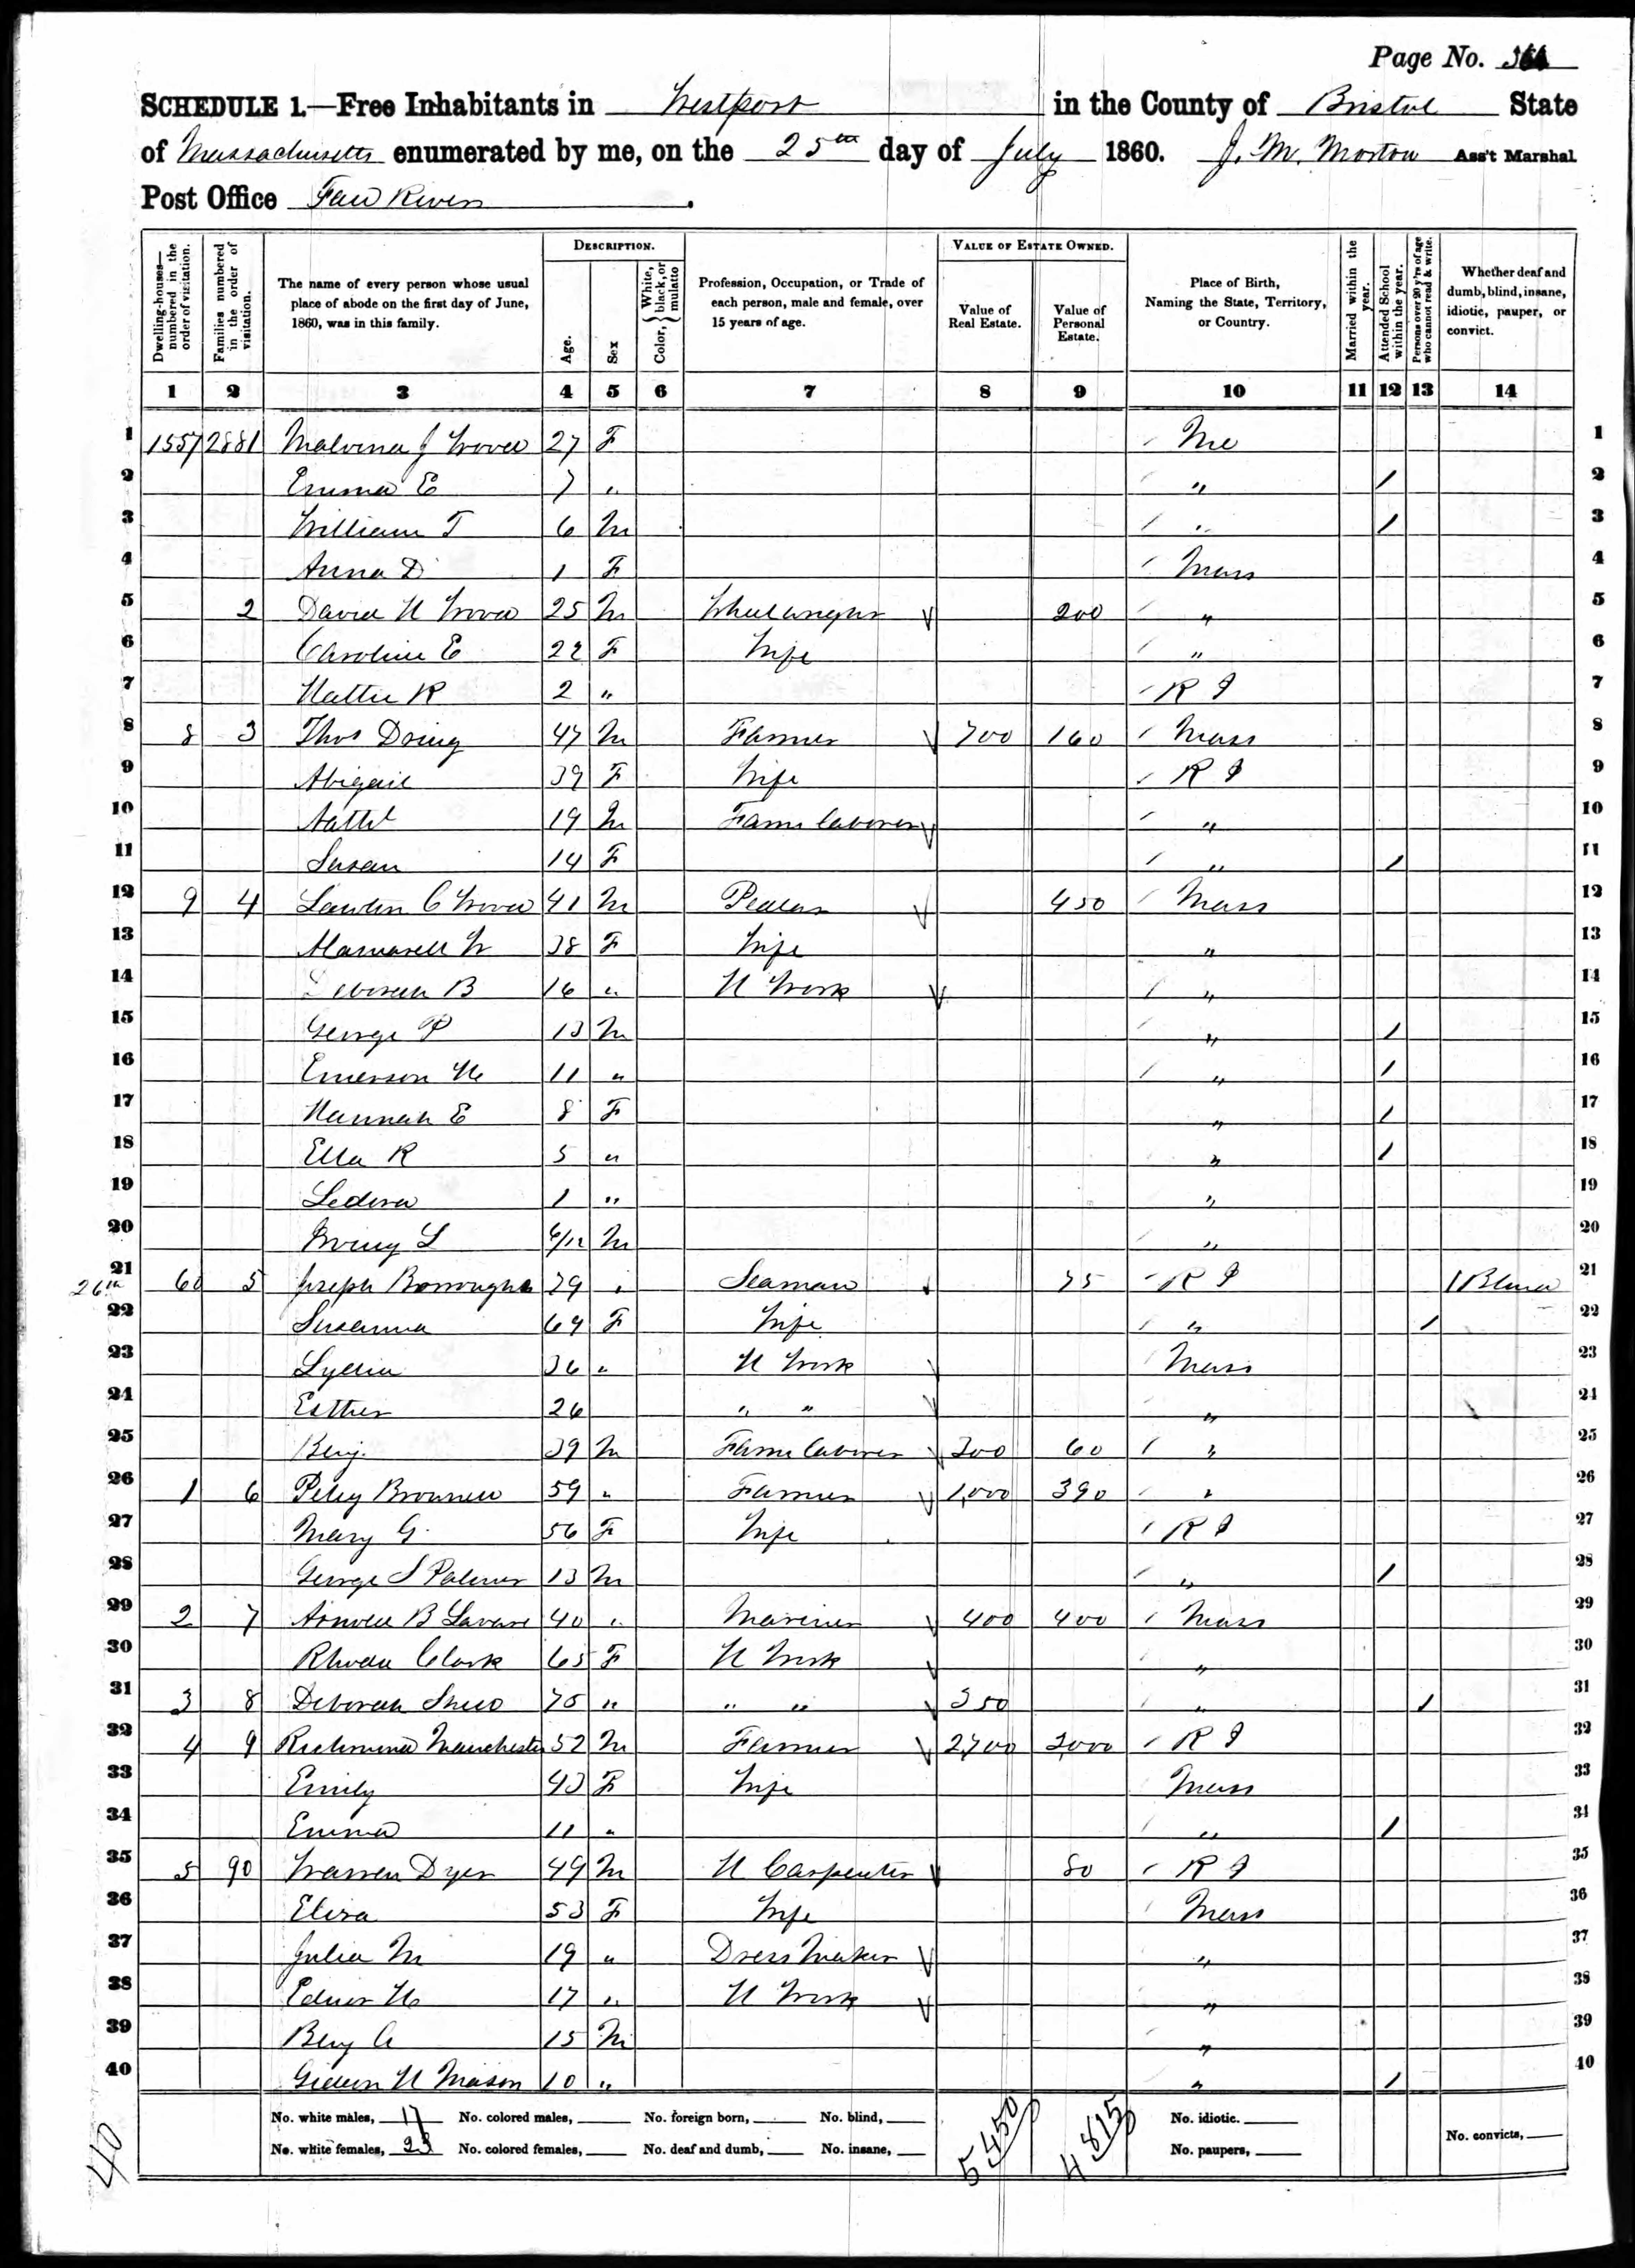 Page No.
SCHEDULE 1.—Free Inhabitants in Westport in the County of Bristol State
of Massachusetts enumerated by me, on the 25th day of July 1860. J. M. Morton Ass't Marshal
Post Office Fall River.
Dwelling-houses—numbered in the order of visitation.
Families numbered in the order of visitation.
The name of every person whose usual place of abode on the first day of June, 1860, was in this family.
DESCRIPTION.
Age.
Sex
Color, { White, black, or mulatto
Profession, Occupation, or Trade of each person, male and female, over 15 years of age.
VALUE OF ESTATE OWNED.
Value of Real Estate.
Value of Personal Estate.
Place of Birth, Naming the State, Territory, or Country.
Married within the year.
Attended School within the year.
Persons over 20 y'rs of age who cannot read & write.
Whether deaf and dumb, blind, insane, idiotic, pauper, or convict.
1 2 3 4 5 6 7 8 9 10 11 12 13 14
1 1557 2881 Malvina J 27 F Me 1
2 Emma E 7 " " / 2
3 William T 6 M " / 3
4 Anna D 1 F Mass 4
5 2 David H 25 M Wheelwright 200 " 5
6 Caroline E 22 F Wife " 6
7 Hattie R 2 " R I 7
8 8 3 Thos Dring 47 M Farmer 700 160 Mass 8
9 Abigail 39 F Wife R I 9
10 Nathl 19 M Farm laborer " 10
11 Susan 14 F " / 11
12 9 4 C 41 M Pedlar 450 Mass 12
13 W 38 F Wife " 13
14 Deborah B 16 " H Work " 14
15 George P 13 M " / 15
16 Emerson H 11 " " / 16
17 Hannah E 8 F " / 17
18 Ella R 5 " " / 18
19 Ledora 1 " " 19
20 Irving L 6/12 M " 20
26th 21 60 5 Joseph Borroughs 79 " Seaman 75 R I Blind 21
22 Susanna 69 F Wife " / 22
23 Lydia 36 " H Work Mass 23
24 Esther 26 " " " 24
25 Benj. 39 M Farm laborer 300 60 " 25
26 1 6 Peleg Brownell 59 " Farmer 1,000 390 " 26
27 Mary G. 56 F Wife R I 27
28 George S Palmer 13 M " / 28
29 2 7 B 40 " Mariner 400 400 Mass 29
30 Rhoda Clark 65 F H Work " 30
31 3 8 Deborah 75 " " " 350 " / 31
32 4 9 Richmond Manchester 52 M Farmer 2,700 3,000 R I 32
33 Emily 43 F Wife Mass 33
34 Emma 11 " " / 34
35 5 90 Warren Dyer 49 M H Carpenter 80 R I 35
36 Eliza 53 F Wife Mass 36
37 Julia M 19 " Dress Maker " 37
38 17 " H Work " 38
39 Benj 15 M " 39
40 Gideon H Mason 10 " " / 40
No. white males, 17 No. colored males, No. foreign born, No. blind, No. idiotic.
No. white females, 23 No. colored females, No. deaf and dumb, No. insane, No. paupers, No. convicts,
40 5450 4815